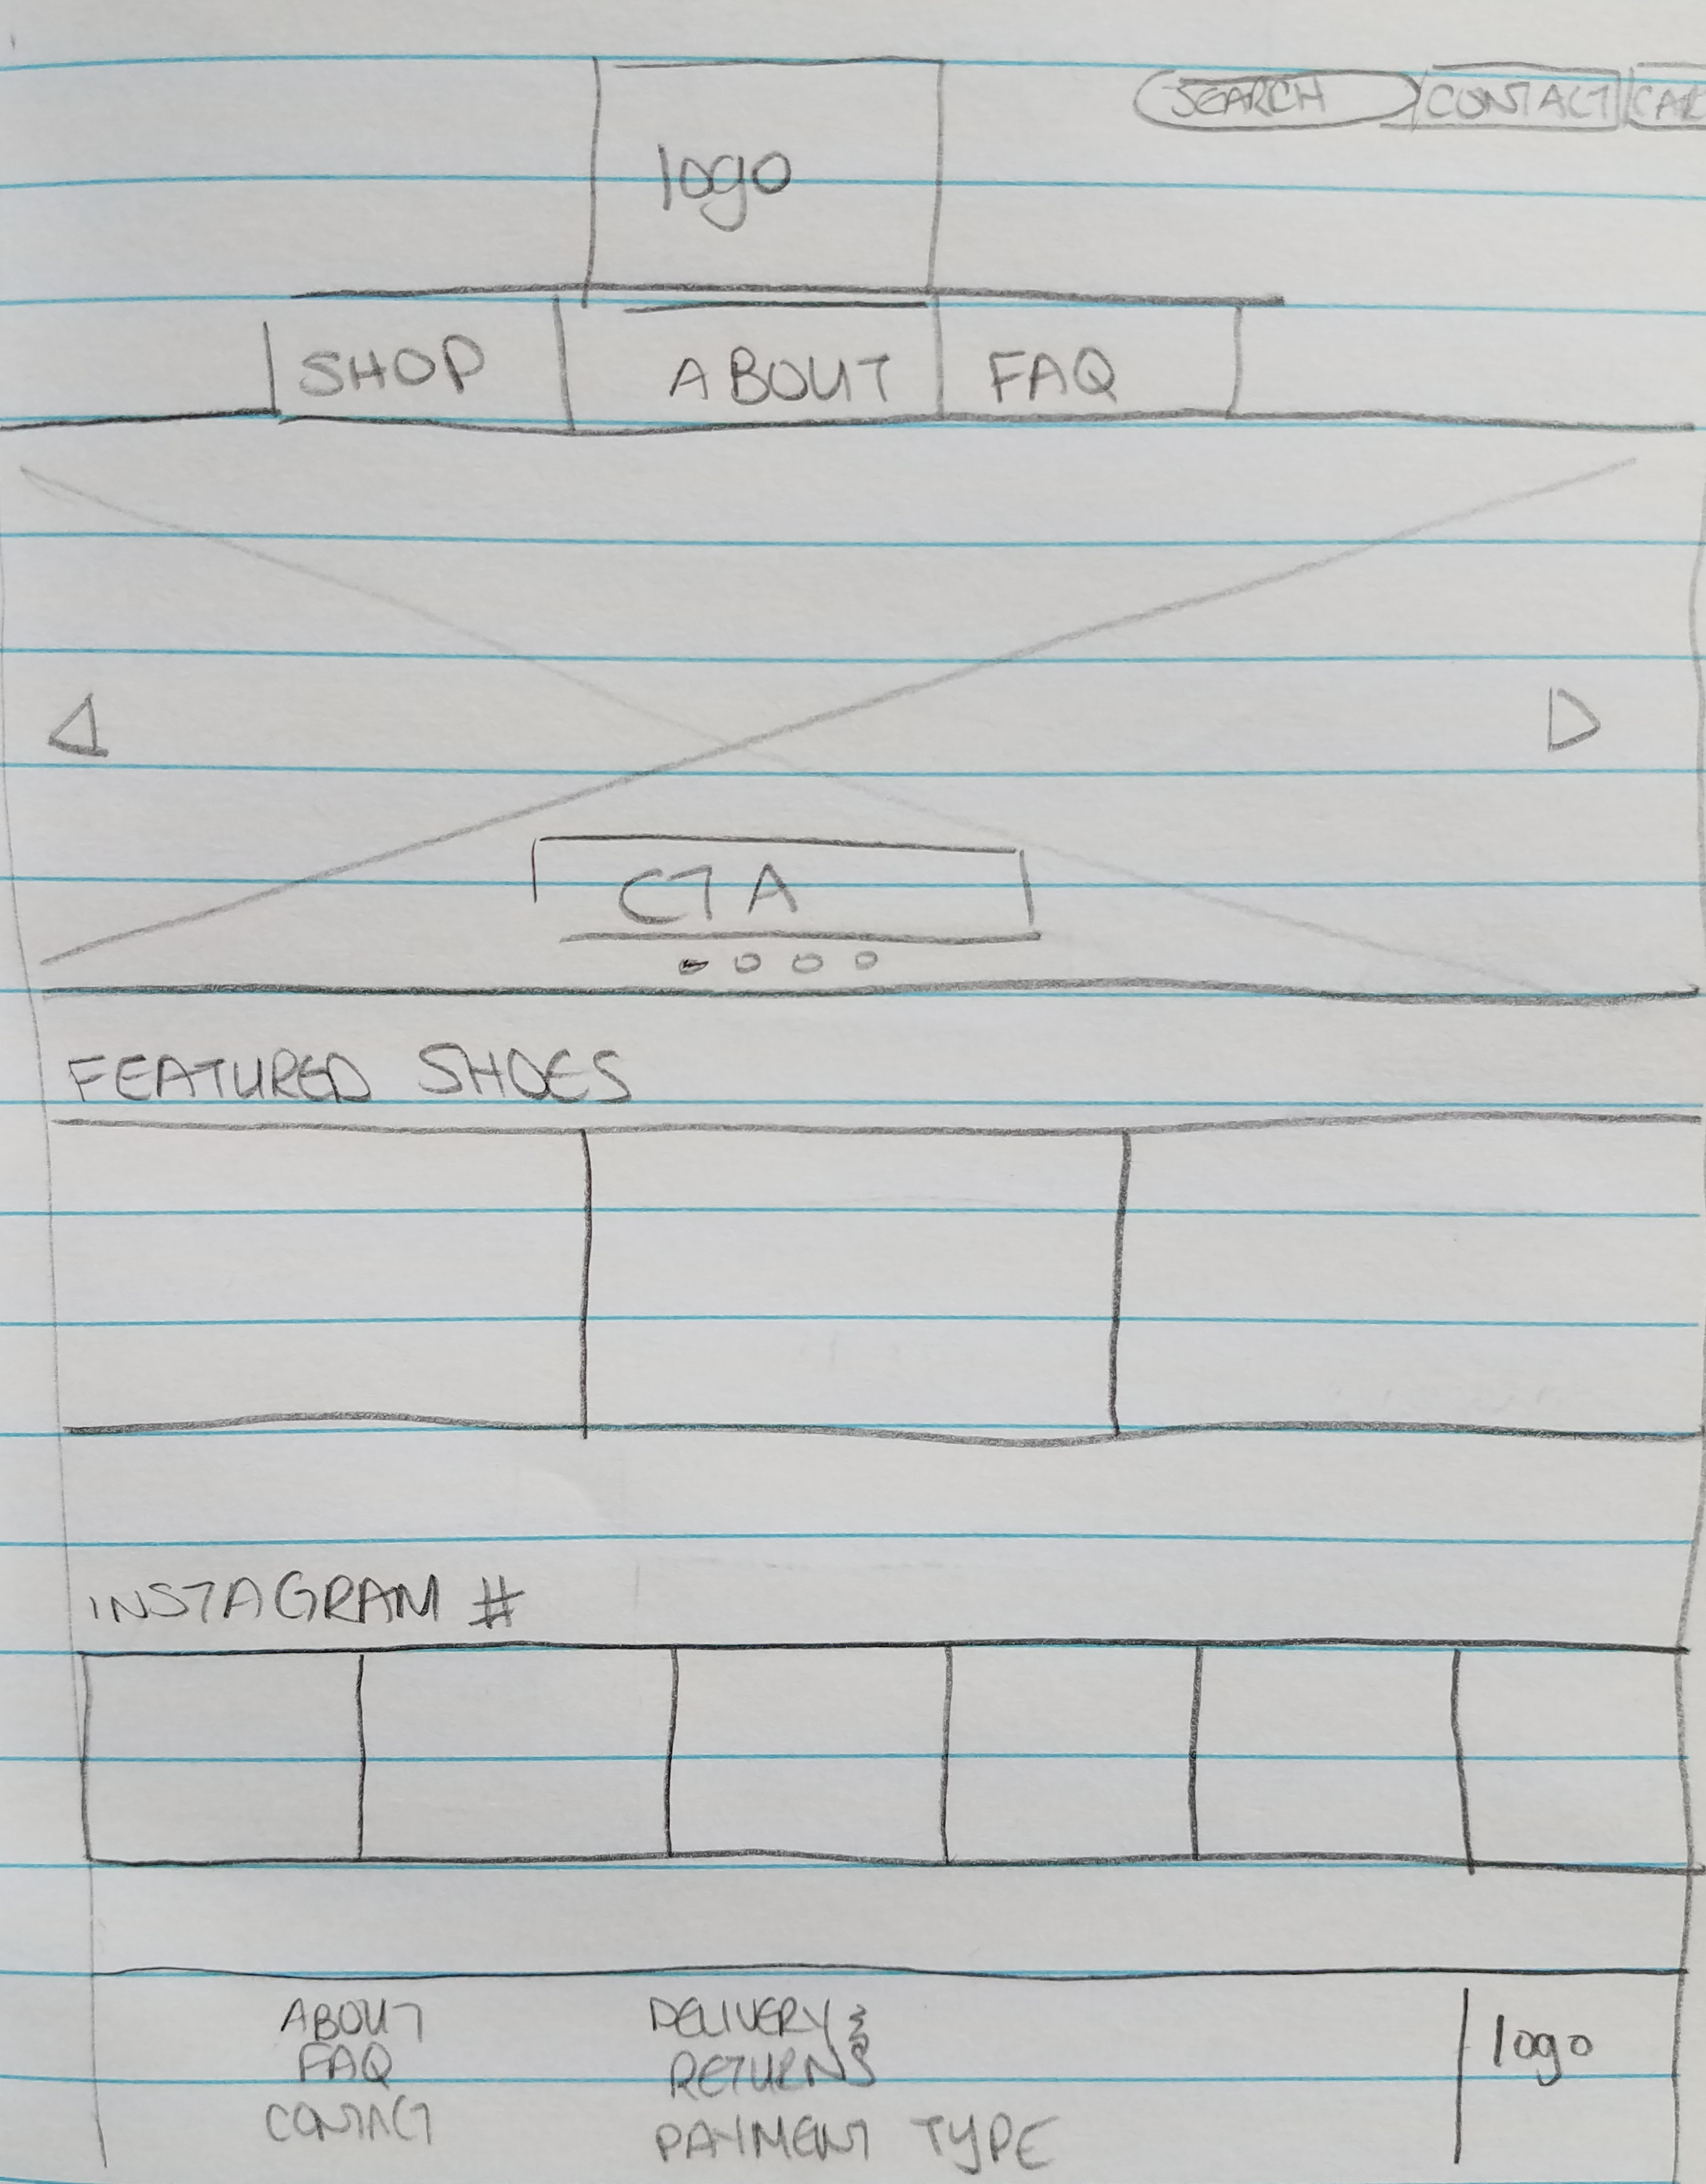 logo
SEARCH CONTACT CAR
SHOP ABOUT FAQ
CTA
FEATURED SHOES
INSTAGRAM #
ABOUT
FAQ
CONTACT
DELIVERY &
RETURNS
PAYMENT TYPE
logo